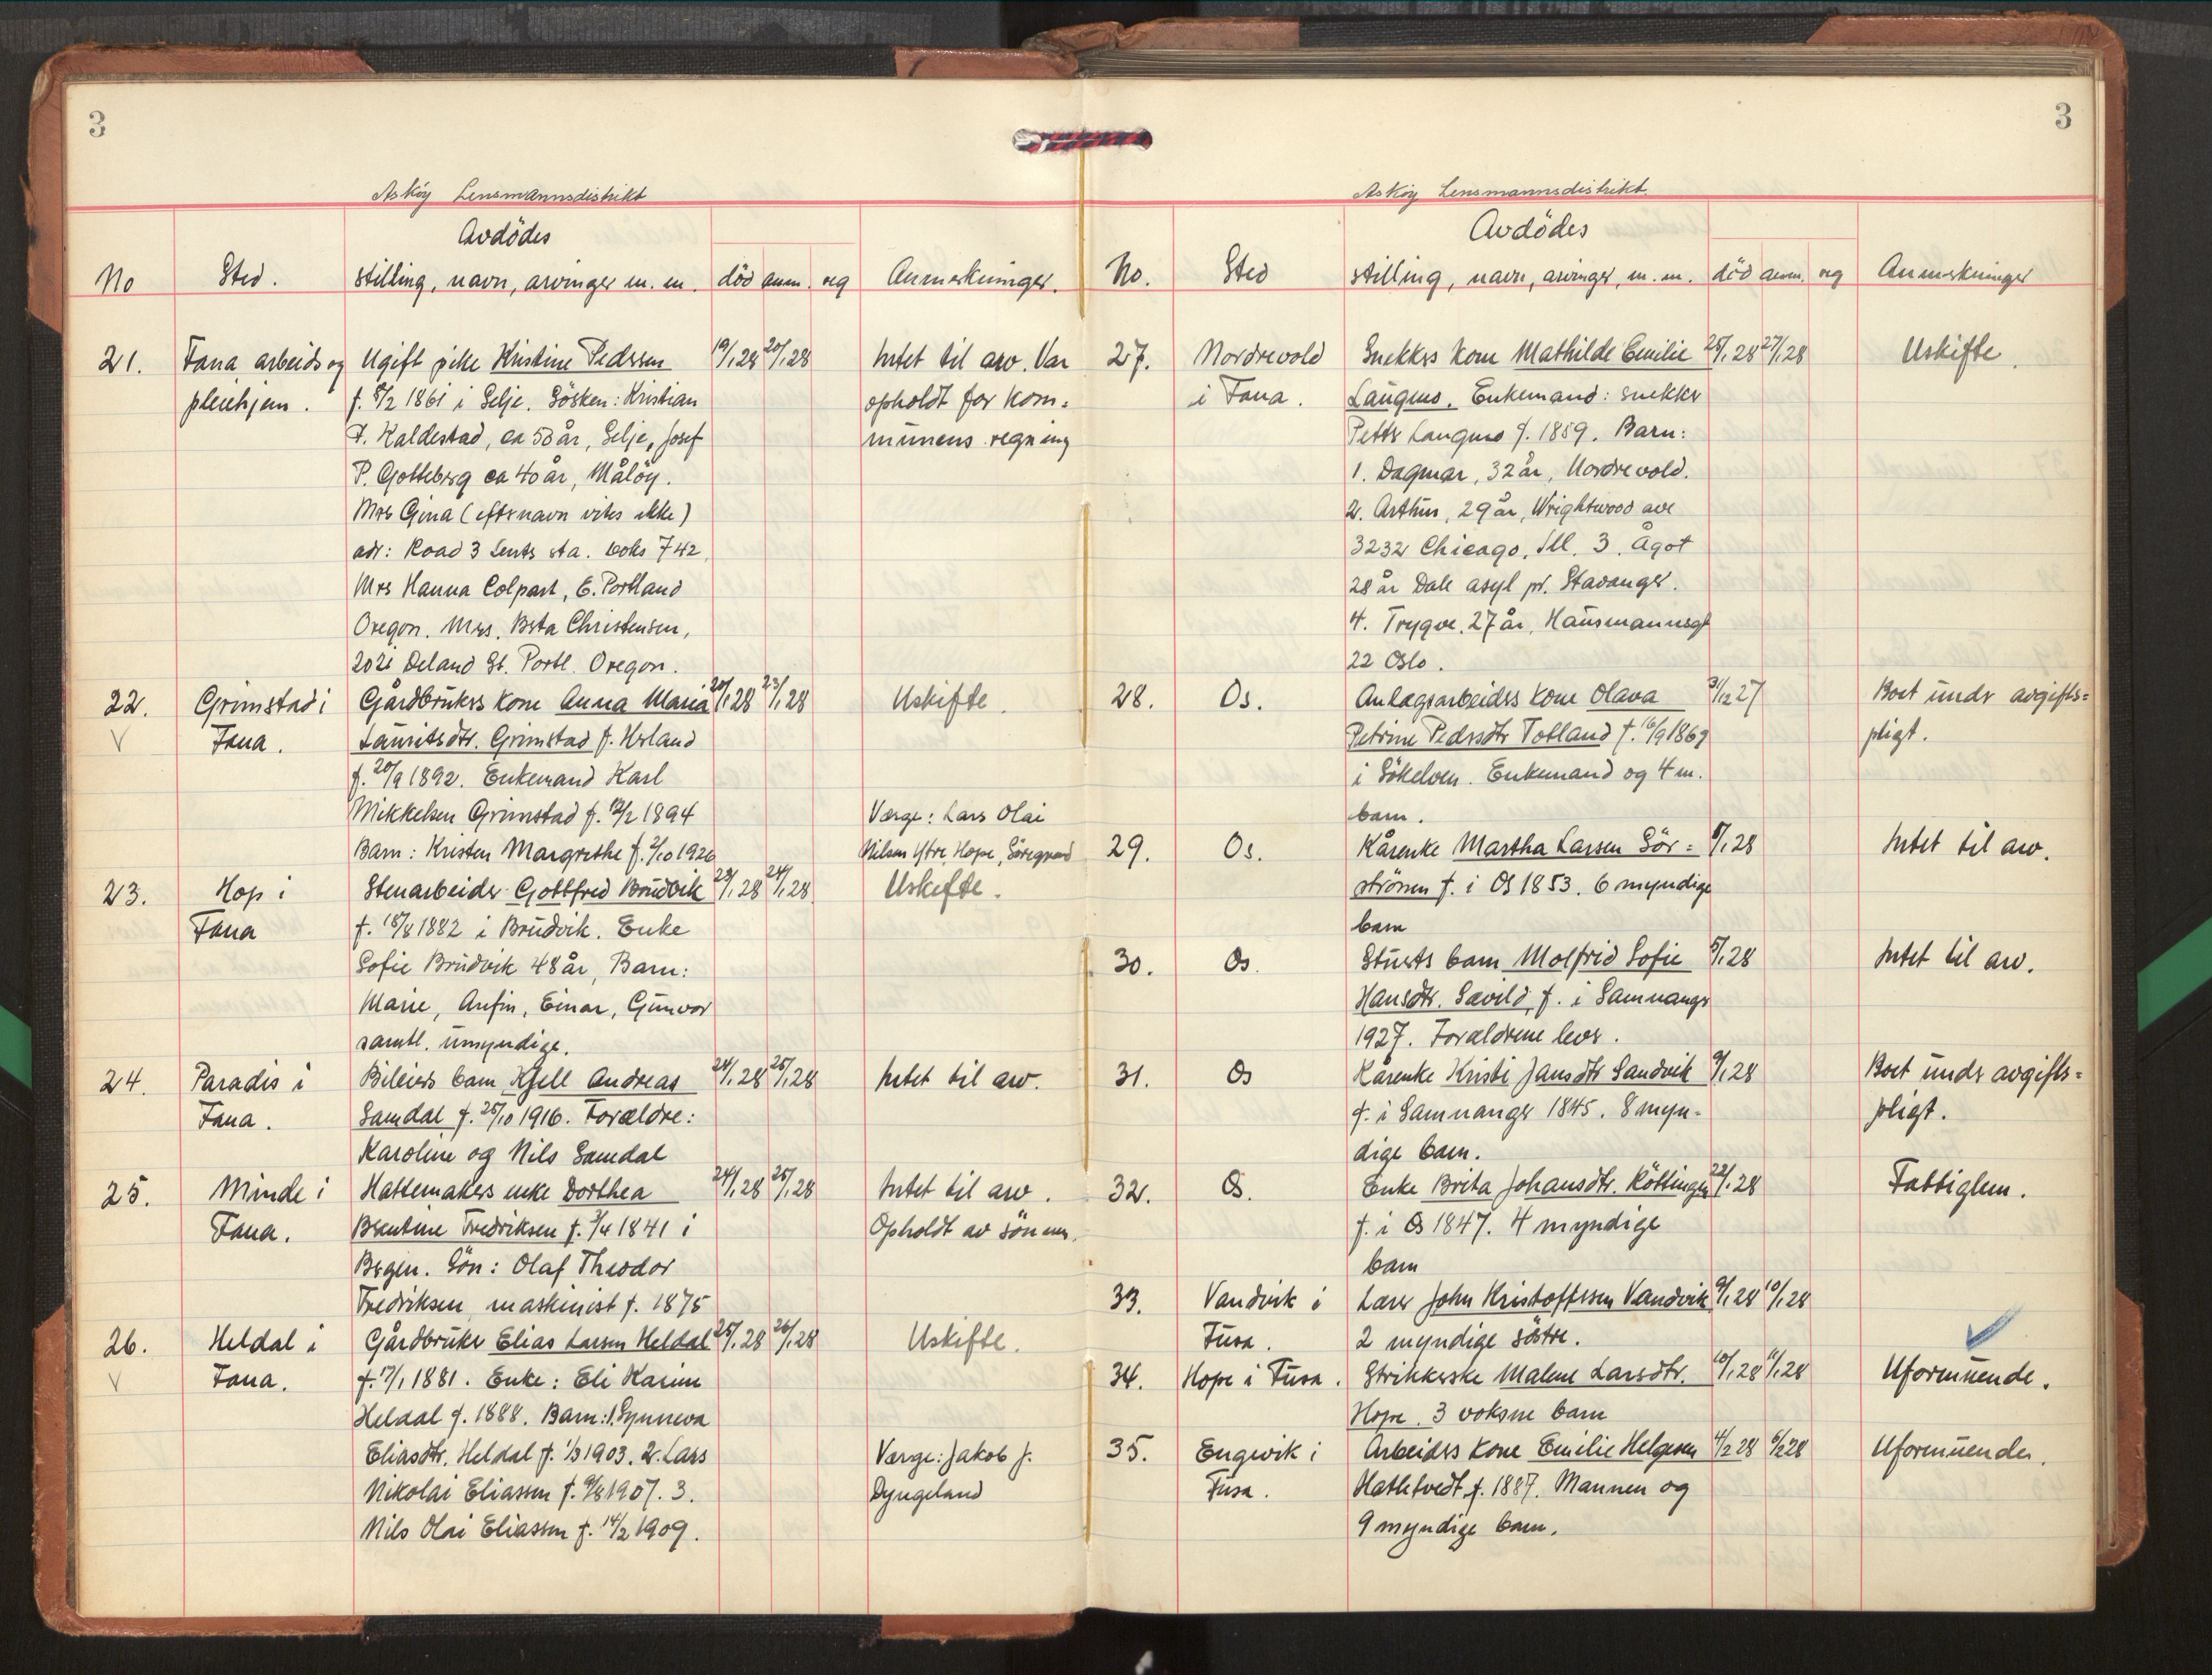 3
Askøy Lensmannsdistrikt
Avdödes
No Sted. stilling, navn, arvinger m. m. död anm. reg Anmerkninger.
21. Fana arbeids og Ugift pike Kristine Pedersen 19/1 28 20/1 28 Intet til arv. Var
pleiehjem. f. 8/2 1861 i Selje. Søsken: Kristian opholdt for kom=
P. Kaldestad, ca 50 år, Selje, Josef munens regning
P. Gotteberg ca 40 år, Måløy.
Mrs Gina (efternavn vites ikke)
adr: Road 3 Lents sta. boks 742,
Mrs Hanna Colpart, E. Portland
Oregon. Mrs. Berta Christensen,
2021 Deland St. Portl. Oregon.
22. Grimstad i Gårdbrukers kone Anna Maria 20/1 28 23/1 28 Uskifte.
V Fana. Lauritsdtr. Grimstad f. Herland
f. 20/9 1892. Enkemand Karl
Mikkelsen Grimstad f. 12/2 1894 Verge: Lars Olai
Barn: Kristen Margrethe f. 2/10 1926 Nilsen Ytre Hope, Söregrend
23. Hop i Stenarbeider Gottfred Brudvik 23/1 28 24/1 28 Uskifte.
Fana f. 18/8 1882 i Brudvik. Enke
Sofie Brudvik 48 år, Barn:
Marie, Anfin, Einar, Gunvor
samtl. umyndige.
24. Paradis i Bileiers barn Kjell Andreas 24/1 28 25/1 28 Intet til arv.
Fana. Samdal f. 25/10 1916. Forældre:
Karoline og Nils Samdal
25. Minde i Hattemakers enke Dorthea 24/1 28 25/1 28 Intet til arv.
Fana. Berntine Fredriksen f. 3/4 1841 i Opholdt av sönnen.
Bergen. Sön: Olaf Theodor
Fredriksen maskinist f. 1875
26. Heldal i Gårdbruker Elias Larsen Heldal 25/1 28 26/1 28 Uskifte.
V Fana. f. 17/1 1881. Enke: Eli Karine
Heldal f. 1888. Barn: 1. Synneva
Eliasdtr. Heldal f. 1/3 1903. 2. Lars Verge: Jakob J.
Nikolai Eliassen f. 9/8 1907. 3. Dyngeland
Nils Olai Eliassen f. 14/2 1909.
3
Askøy Lensmannsdistrikt.
Avdödes
No. Sted stilling, navn, arvinger, m. m. död anm. reg Anmerkninger
27. Nordrevold Snekkers kone Mathilde Emilie 25/1 28 27/1 28 Uskifte.
i Fana. Laugmo. Enkemand: snekker
Petter Laugmo f. 1859. Barn:
1. Dagmar, 32 år, Nordrevold.
2. Arthur, 29 år, Wrightwood ave
3232 Chicago, Ill. 3. Ågot
28 år Dale asyl pr. Stavanger.
4. Trygve. 27 år, Hausmannsgt
22 Oslo.
28. Os. Anlægsarbeiders kone Olava 31/12 27 Boet under avgifts=
Petrine Pedersdtr Tobland f. 16/9 1869 pligt.
i Sökelven. Enkemand og 4 m.
barn.
29. Os. Kårenke Martha Larsen Sör= 8/1 28 Intet til arv.
strönen f. i Os 1853. 6 myndige
barn
30. Os. Stuerts barn Molfrid Sofie 5/1 28 Intet til arv.
Hansdtr. Sævild, f. i Samnanger
1927. Forældrene lever.
31. Os Kårenke Kristi Jansdtr Sandvik 9/1 28 Boet under avgifts=
f. i Samnanger 1845. 8 myn- pligt.
dige barn.
32. Os. Enke Brita Johansdtr. Röttingen 22/1 28 Fattiglem.
f. i Os 1847. 4 myndige
barn
33. Vandvik i Lærer John Kristoffersen Vandvik 9/1 28 10/1 28
Fusa. 2 myndige söstre.
34. Hope i Fusa. Strikkerske Malene Larsdtr. 10/1 28 11/1 28 Uformuende.
Hope. 3 voksne barn
35. Engevik i Arbeiders kone Emilie Helgesen 4/2 28 6/2 28 Uformuende.
Fusa. Hatletvedt f. 1887. Mannen og
9 myndige barn.